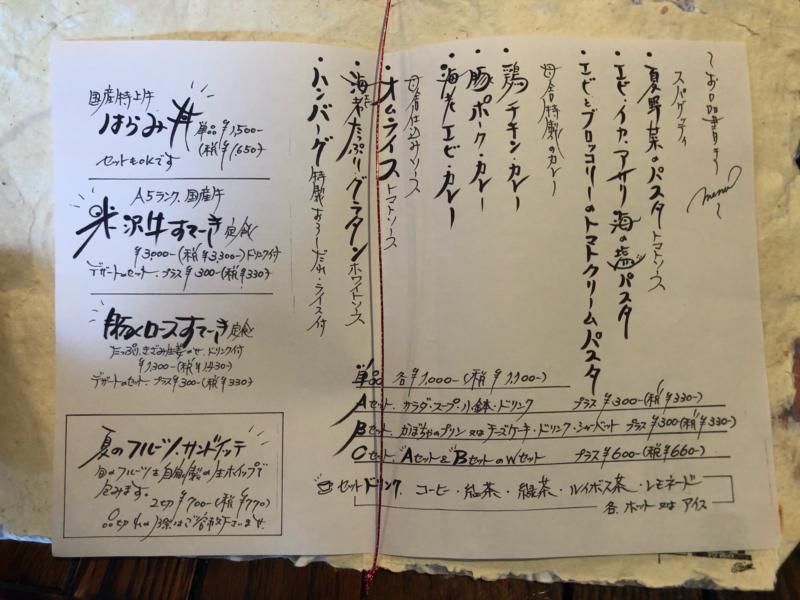 〜お品書き〜
menu
スパゲッティ
・夏野菜のパスタ トマトソース
・エビ・イカ・アサリ 海の塩パスタ
・エビとブロッコリーのトマトクリームパスタ
特製のカレー
・鶏 チキン・カレー
・豚 ポーク・カレー
・海老 エビ・カレー
仕込みソース
・オムライス トマトソース
・海老たっぷり・グラタン ホワイトソース
・ハンバーグ 特製おろしだれ・ライス付
単品 各¥1,000-(税¥1,100-)
Aセット. サラダ・スープ・小鉢・ドリンク プラス¥300-(税¥330-)
Bセット. かぼちゃのプリン 又は チーズケーキ・ドリンク・シャーベット プラス¥300(税¥330-)
Cセット. "Aセット&"BセットのWセット プラス¥600-(税¥660-)
セットドリンク. コーヒー・紅茶・緑茶・ルイボス茶・レモネード
各. ホット 又は アイス
国産特上牛
はらみ丼 単品¥1,500-
(税¥1,650)
セットもOKです
A5ランク. 国産牛
米沢牛すてーき定食
¥3,000-(税¥3,300-)ドリンク付
デザートのセット. プラス¥300-(税¥330)
豚ロースすてーき定食
たっぷり. きざみ生姜のせ. ドリンク付
¥1,300-(税¥1,430)
デザートのセット. プラス¥300-(税¥330)
夏のフルーツ.サンドイッチ
旬のフルーツを自家製の生ホイップで
包みます。
2切¥700-(税¥770)